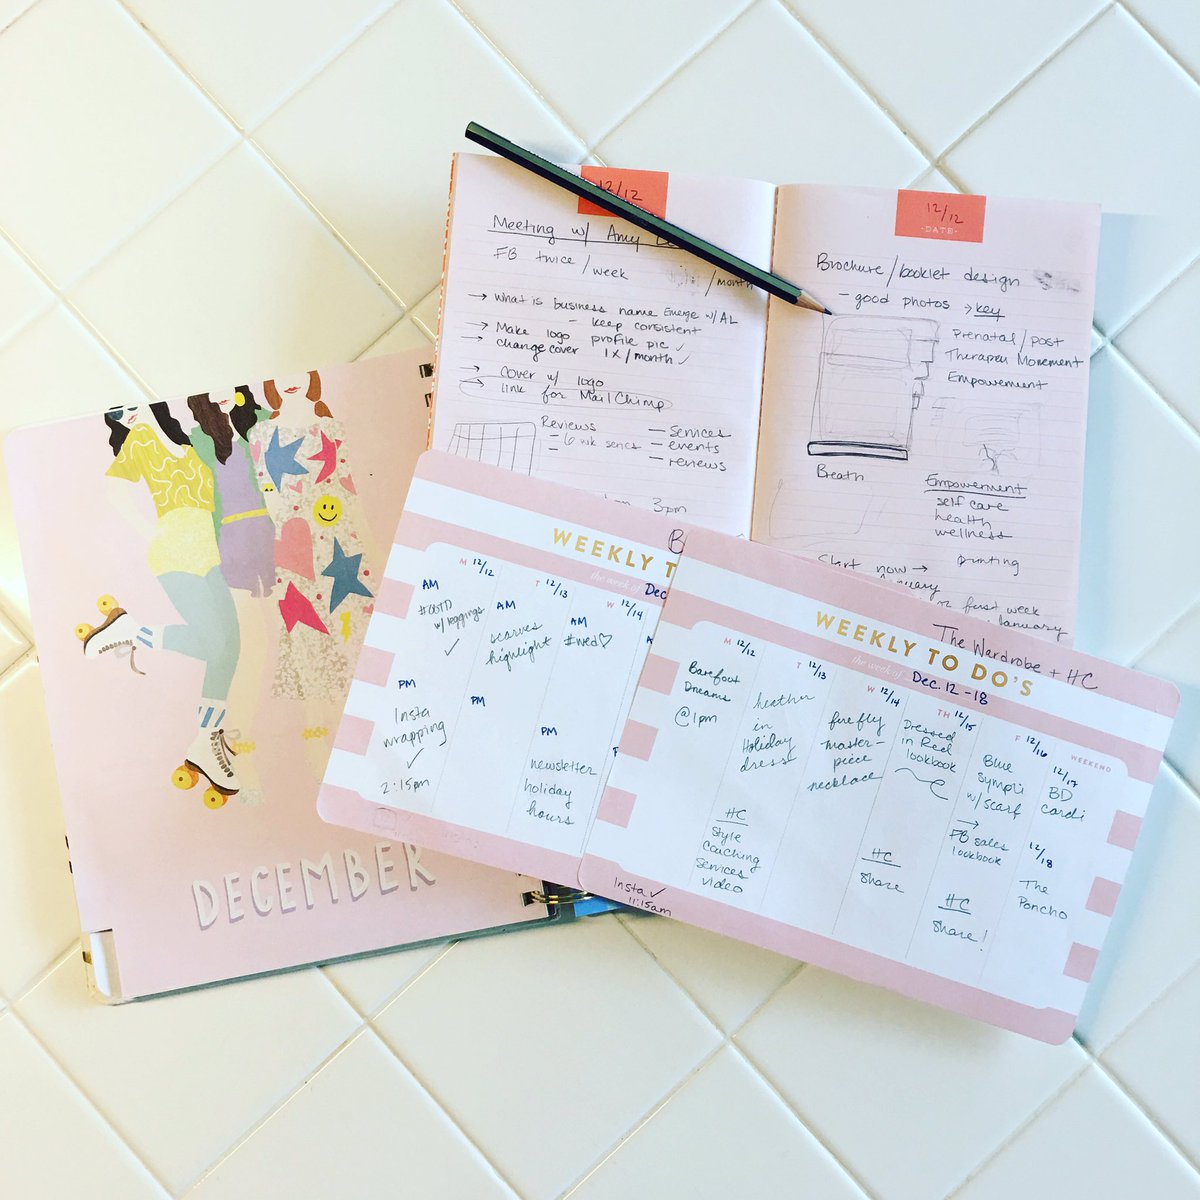 12/12
Meeting w/ Amy
FB twice/week /month
→ what is business name Emerge w/ AL
- keep consistent
→ Make logo profile pic ✓
→ change cover 1x/month ✓
→ cover w/ logo
→ link for MailChimp
Reviews — services
- 6 wk series — events
— reviews
3pm
12/12
·DATE·
Brochure/booklet design
- good photos → key
Prenatal/post
Movement
Empowerment
Breath
Empowerment
self care
health
wellness
Start now → printing
January
first week
January
DECEMBER
WEEKLY T
the week of Dec
M 12/12
AM
#OOTD
w/ leggings
✓
PM
Insta
wrapping
✓
2:15pm
T 12/13
AM
scarves
highlight
PM
W 12/14
AM
#wed♡
PM
newsletter
holiday
hours
The Wardrobe + HC
WEEKLY TO DO'S
the week of Dec. 12-18
M 12/12
Barefoot
Dreams
@1pm
HC
style
coaching
services
video
Insta ✓
11:15am
T 12/13
heather
in
Holiday
dress
W 12/14
firefly
master-
piece
necklace
HC
share
TH 12/15
Dressed
in Red
lookbook
F 12/16
Blue
w/ scarf
→
FB sales
lookbook
HC
share!
WEEKEND
12/17
BD
cardi
12/18
The
Poncho